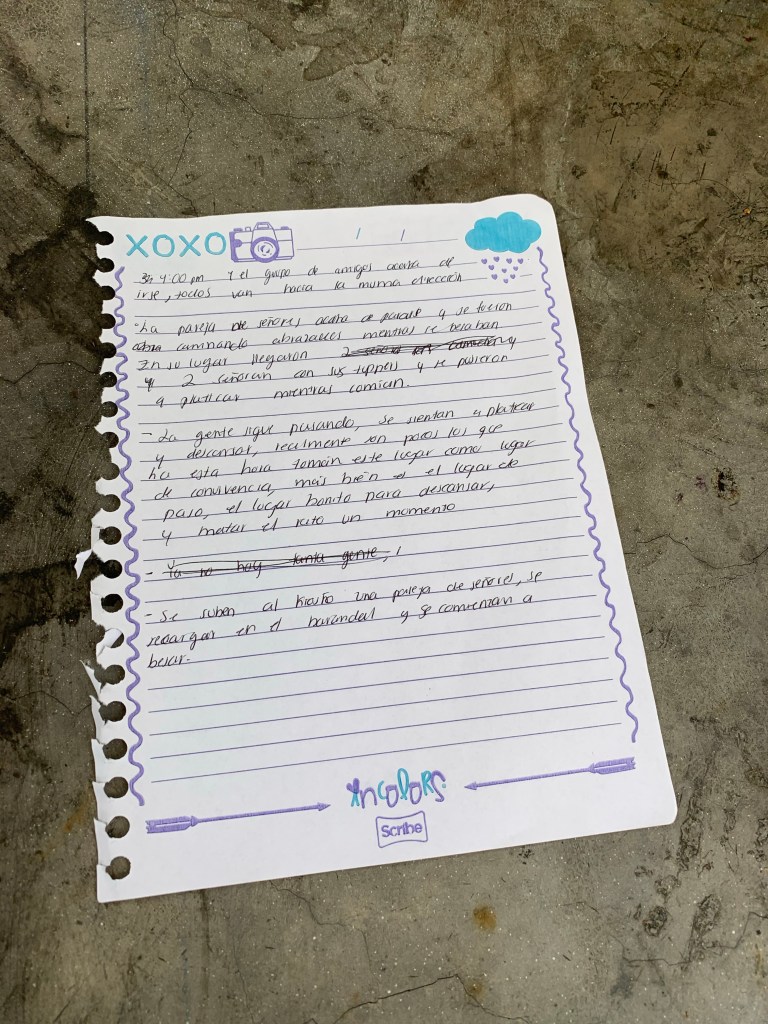 XOXO
/ /
4:00 pm Y el grupo de amigos acaba de
irse, todos van hacia la misma dirección
·La pareja de señores acaba de pararse y se fueron
caminando abrazados mientras se besaban
En su lugar llegaron 2
y 2 señoras con sus tuppers y se pusieron
a platicar mientras comían.
- La gente sigue pasando, se sientan a platicar
y descansar, realmente son pocos los que
ha esta hora toman este lugar como lugar
de convivencia, más bien es el lugar de
paso, el lugar bonito para descansar,
y matar el rato un momento
- Ya no hay tanta gente,
- Se suben al kiosko una pareja de señores, se
recargan en el barandal y se comienzan a
besar.
incolors
Scribe